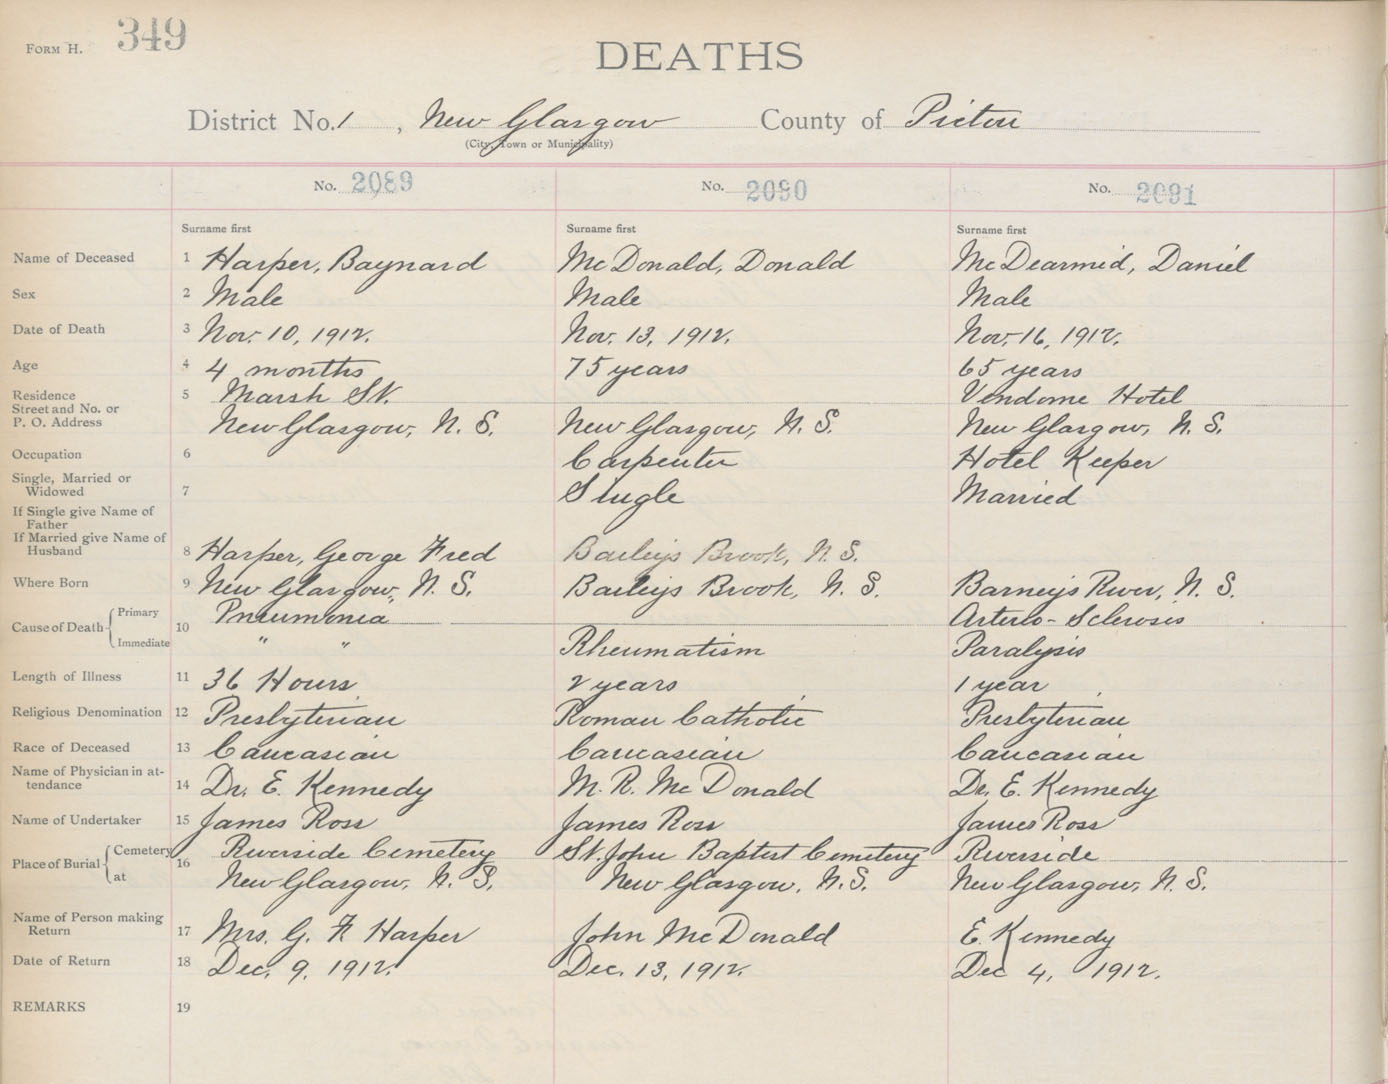 FORM H. 349
DEATHS
District No. 1, New Glasgow County of Pictou
(City, Town or Municipality)
No. 2089 No. 2090 No. 2091
Surname first Surname first Surname first
Name of Deceased 1 Harper, Baynard McDonald, Donald McDearmid, Daniel
Sex 2 Male Male Male
Date of Death 3 Nov. 10, 1912. Nov. 13, 1912. Nov. 16, 1912.
Age 4 4 months 75 years 65 years
Residence 5 Marsh St. Vendome Hotel
Street and No. or
P. O. Address New Glasgow, N. S. New Glasgow, N. S. New Glasgow, N. S.
Occupation 6 Carpenter Hotel Keeper
Single, Married or
Widowed 7 Single Married
If Single give Name of
Father
If Married give Name of
Husband 8 Harper, George Fred Baileys Brook, N. S.
Where Born 9 New Glasgow, N. S. Baileys Brook, N. S. Barneys River, N. S.
Cause of Death Primary 10 Pneumonia Arterio-Sclerosis
Immediate " " Rheumatism Paralysis
Length of Illness 11 36 Hours 2 years 1 year
Religious Denomination 12 Presbyterian Roman Catholic Presbyterian
Race of Deceased 13 Caucasian Caucasian Caucasian
Name of Physician in at-
tendance 14 Dr. E. Kennedy M. R. McDonald Dr. E. Kennedy
Name of Undertaker 15 James Ross James Ross James Ross
Place of Burial Cemetery 16 Riverside Cemetery St. John Baptist Cemetery Riverside
at New Glasgow, N. S. New Glasgow, N. S. New Glasgow, N. S.
Name of Person making
Return 17 Mrs. G. F. Harper John McDonald E. Kennedy
Date of Return 18 Dec. 9, 1912. Dec. 13, 1912. Dec 4, 1912.
REMARKS 19